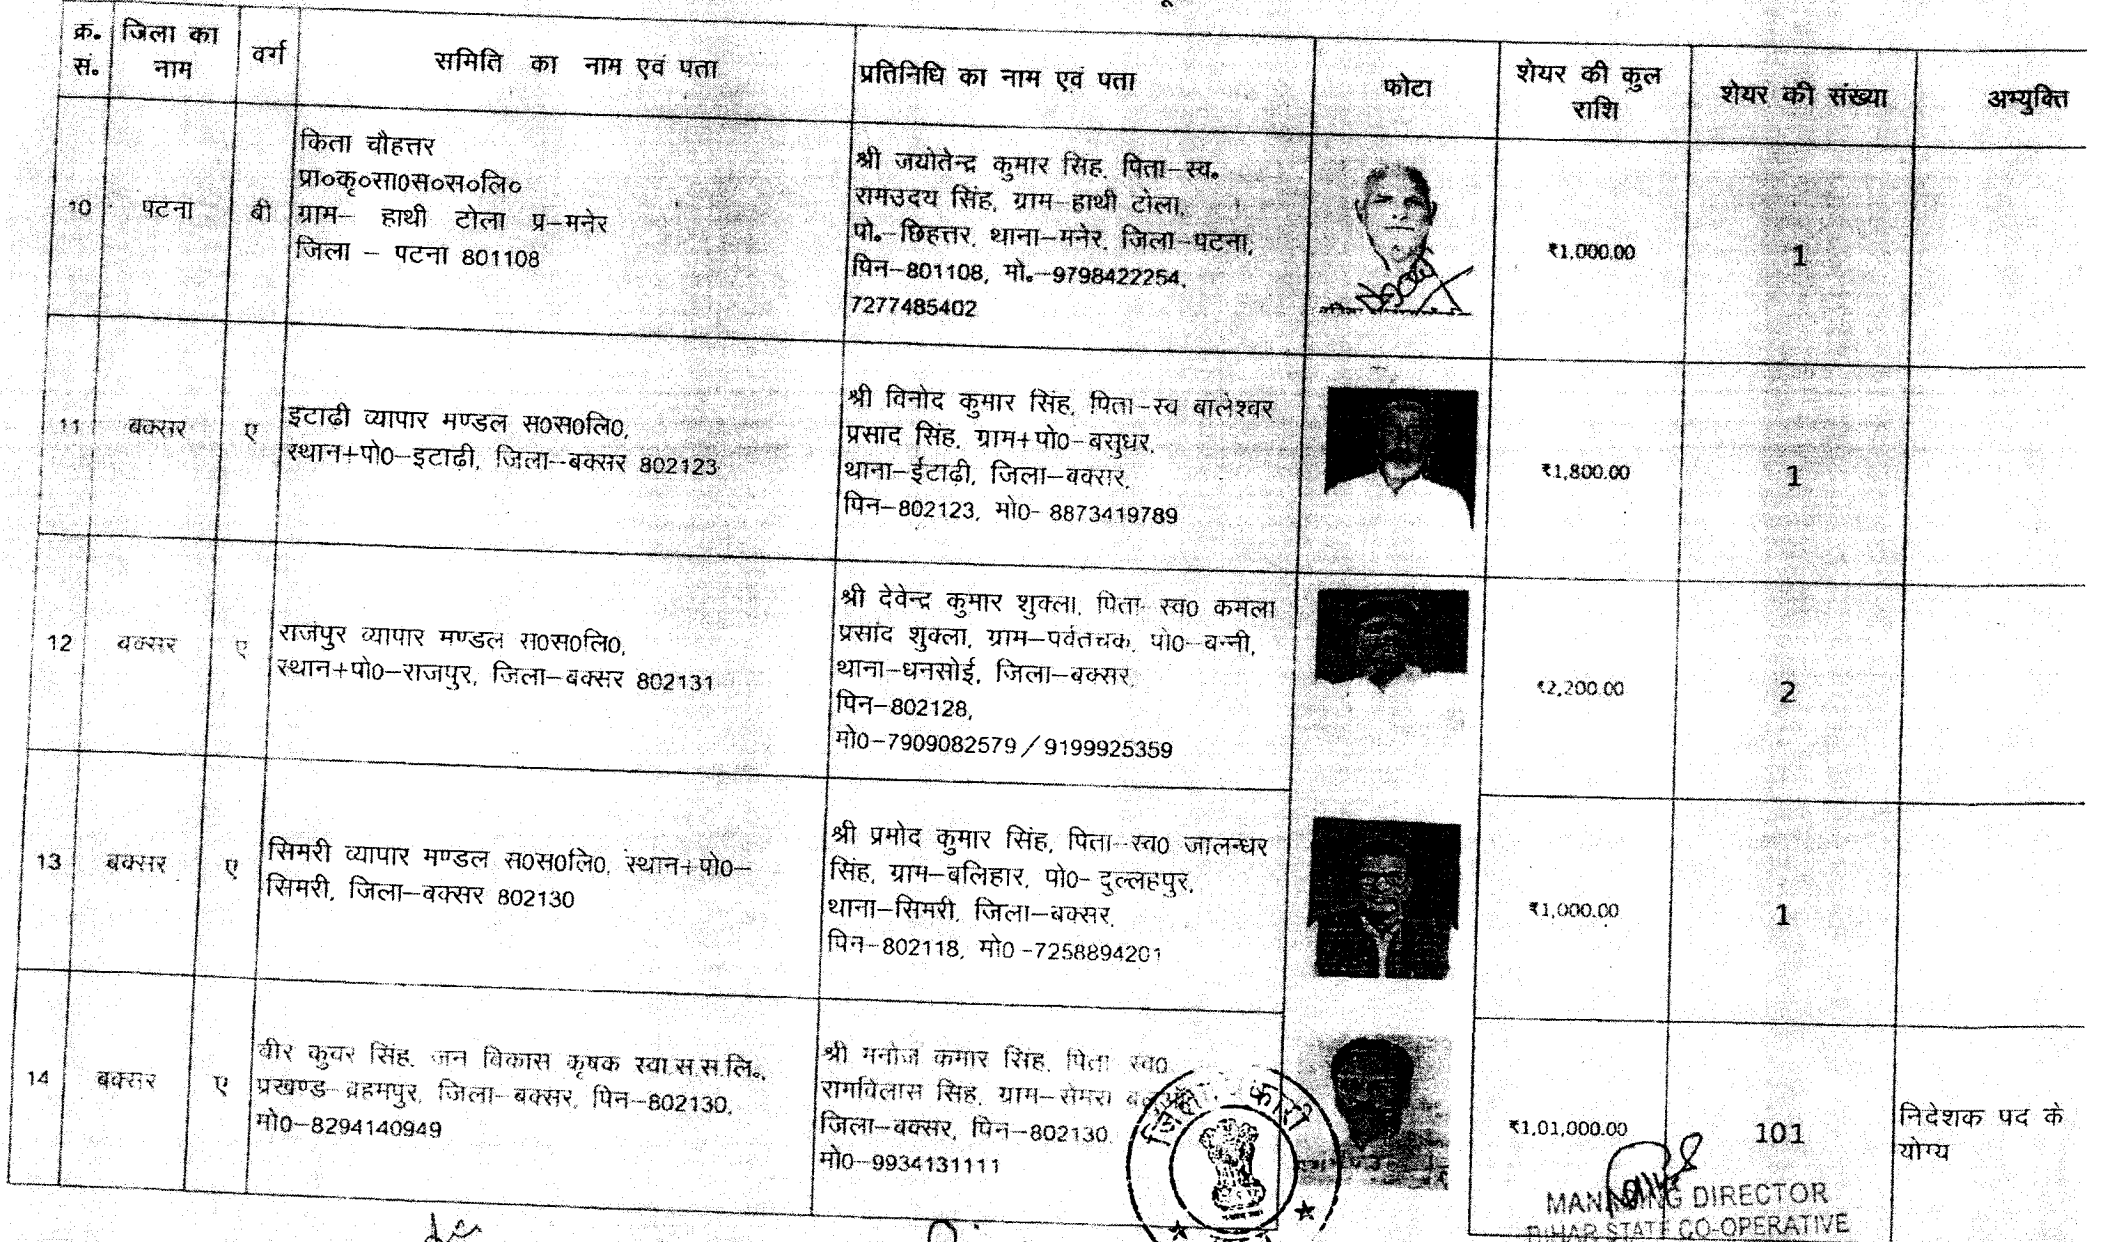 क्र॰ सं॰
जिला का नाम
वर्ग
समिति का नाम एवं पता
प्रतिनिधि का नाम एवं पता
फोटा
शेयर की कुल राशि
शेयर की संख्या
अभ्युक्ति
10
पटना
बी
किता चौहत्तर
प्रा०कृ०सा0स०स०लि०
ग्राम– हाथी टोला प्र–मनेर
जिला – पटना 801108
श्री जयोतेन्द्र कुमार सिह, पिता–स्व॰
रामउदय सिंह, ग्राम–हाथी टोला,
पो॰–छिहत्तर, थाना–मनेर, जिला–पटना,
पिन–801108, मो॰–9798422254,
7277485402
₹1,000.00
1
11
बक्सर
ए
इटाढ़ी व्यापार मण्डल स0स0लि0,
स्थान+पो0–इटाढी, जिला–बक्सर 802123
श्री विनोद कुमार सिंह, पिता–स्व बालेश्वर
प्रसाद सिंह, ग्राम+पो0–बसुधर,
थाना–ईटाढ़ी, जिला–बक्सर,
पिन–802123, मो0- 8873419789
₹1,800.00
1
12
बक्सर
ए
राजपुर व्यापार मण्डल स0स0लि0,
स्थान+पो0–राजपुर, जिला–बक्सर 802131
श्री देवेन्द्र कुमार शुक्ला, पिता- स्व0 कमला
प्रसाद शुक्ला, ग्राम–पर्वतचक, पो0–बन्नी,
थाना–धनसोई, जिला–बक्सर,
पिन–802128,
मो0–7909082579 / 9199925359
₹2,200.00
2
13
बक्सर
ए
सिमरी व्यापार मण्डल स0स0लि0, स्थान+पो0–
सिमरी, जिला–बक्सर 802130
श्री प्रमोद कुमार सिंह, पिता–स्व0 जालन्धर
सिंह, ग्राम–बलिहार, पो0- दुल्लहपुर,
थाना–सिमरी, जिला–बक्सर,
पिन–802118, मो0 -7258894201
₹1,000.00
1
14
बक्सर
ए
वीर कुवर सिंह, जन विकास कृषक स्वा.स.स.लि॰,
प्रखण्ड–ब्रहमपुर, जिला–बक्सर, पिन–802130,
मो0–8294140949
श्री मनोज कमार सिंह, पिता स्व0
रामविलास सिह, ग्राम–सेमरा
जिला–बक्सर, पिन–802130,
मो0–9934131111
₹1,01,000.00
101
निदेशक पद के
योग्य
MANAGING DIRECTOR
BIHAR STATE CO-OPERATIVE